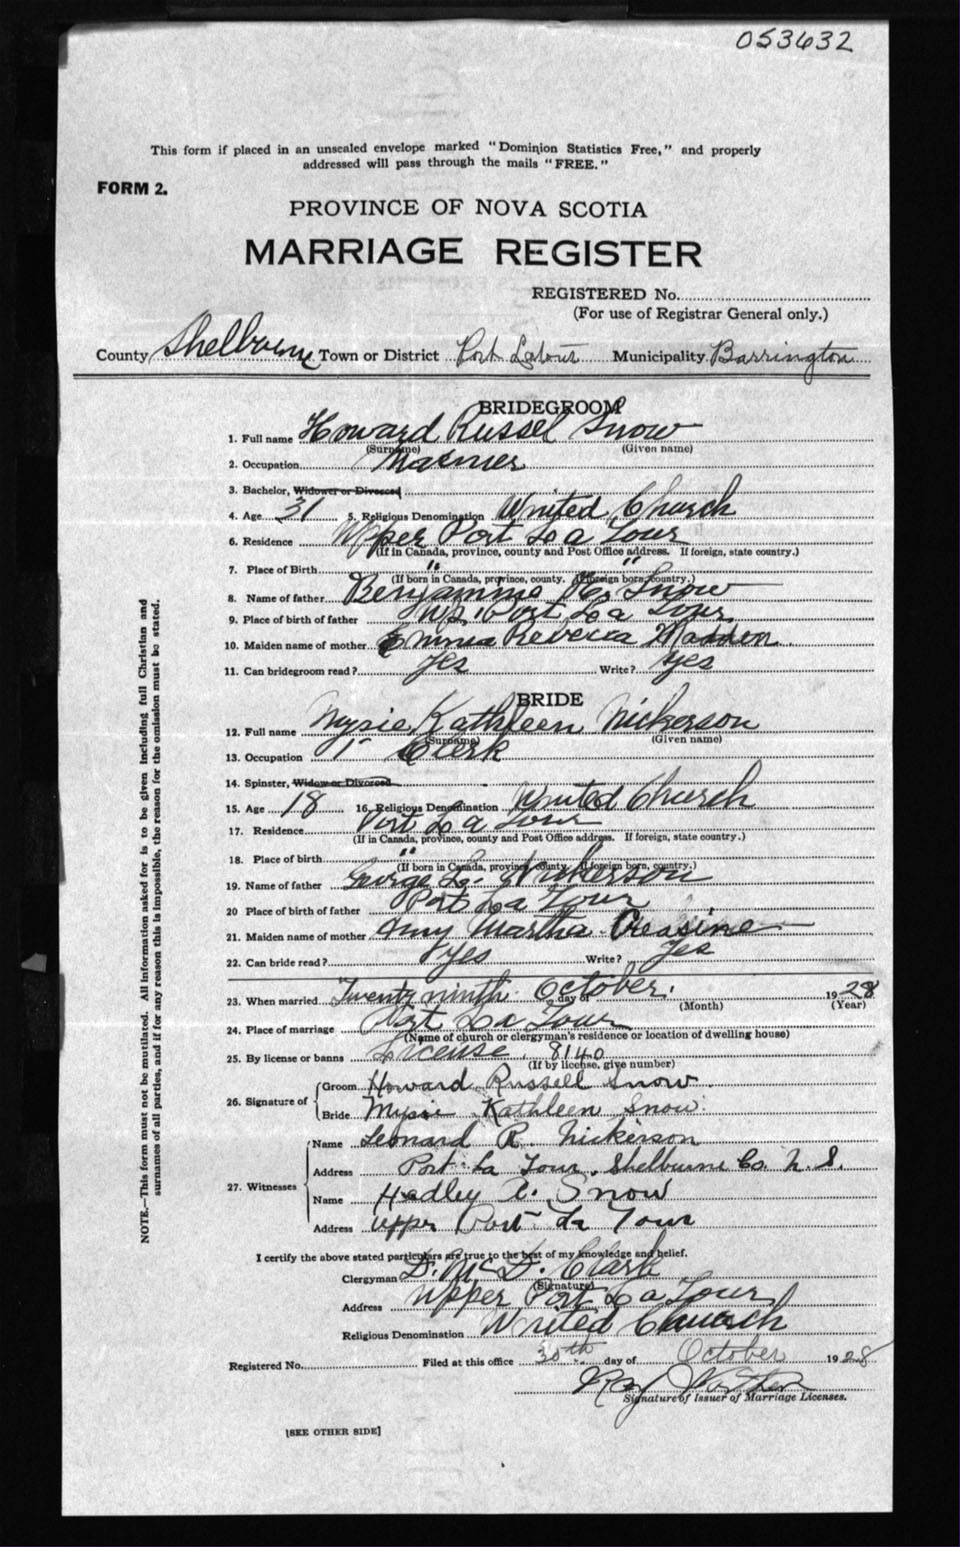 053632
This form if placed in an unsealed envelope marked "Dominion Statistics Free," and properly
addressed will pass through the mails "FREE."
FORM 2.
PROVINCE OF NOVA SCOTIA
MARRIAGE REGISTER
REGISTERED No.
(For use of Registrar General only.)
County Shelburne Town or District Port Latour Municipality Barrington
BRIDEGROOM
1. Full name Howard Russel Snow
(Surname) (Given name)
2. Occupation Mariner
3. Bachelor, Widower or Divorced
4. Age 31 5. Religious Denomination United Church
6. Residence Upper Port La Tour
(If in Canada, province, county and Post Office address. If foreign, state country.)
7. Place of Birth " "
(If born in Canada, province, county. If foreign born, country.)
8. Name of father Benjamine Snow
9. Place of birth of father Up. Port La Tour
10. Maiden name of mother Emma Rebecca Madden
11. Can bridegroom read? Yes Write? Yes
BRIDE
12. Full name Mysie Kathleen Nickerson
(Surname) (Given name)
13. Occupation Clerk
14. Spinster, Widow or Divorced
15. Age 18 16. Religious Denomination United Church
17. Residence Port La Tour
(If in Canada, province, county and Post Office address. If foreign, state country.)
18. Place of birth "
(If born in Canada, province, county. If foreign born, country.)
19. Name of father George L. Nickerson
20 Place of birth of father Port La Tour
21. Maiden name of mother Amy Martha Creasine
22. Can bride read? Yes Write? Yes
23. When married Twenty ninth day of October. 1928
(Month) (Year)
24. Place of marriage Port La Tour
(Name of church or clergyman's residence or location of dwelling house)
25. By license or banns License 8140
(If by license, give number)
26. Signature of Groom Howard Russell Snow
Bride Mysie Kathleen Snow
27. Witnesses Name Leonard R. Nickerson
Address Port La Tour, Shelburne Co. N. S.
Name Hadley A. Snow
Address Upper Port La Tour
I certify the above stated particulars are true to the best of my knowledge and belief.
Clergyman D. McD. Clark
(Signature)
Address Upper Port La Tour
Religious Denomination United Church
Registered No. Filed at this office 30th day of October 1928
Ray
Signature of Issuer of Marriage Licenses.
[SEE OTHER SIDE]
NOTE.—This form must not be mutilated. All information asked for is to be given including full Christian and
surnames of all parties, and if for any reason this is impossible, the reason for the omission must be stated.